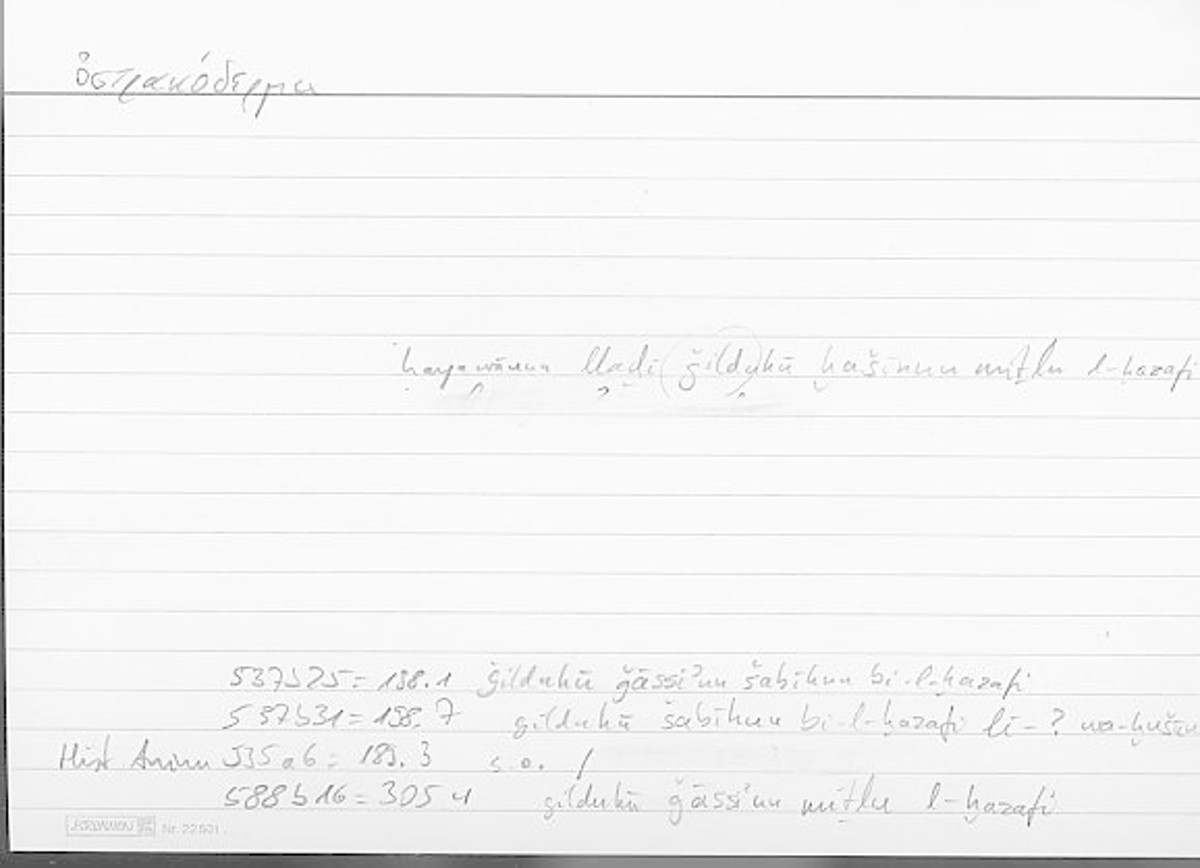 ὀστρακόδερμα
ḥayawānun lladī ǧilduhū ḫašinun miṯlu l-ḫazafi
537b25 = 188.1 ǧilduhū ǧāssiʾun šabīhun bi-l-ḫazafi
537b31 = 188.7 ǧilduhū šabīhun bi-l-ḫazafi ? wa-ḫušūn
Hist Anim 535a6 = 189.3 s.o. /
588b16 = 305 ǧilduhū ǧāssiʾun miṯlu l-ḫazafi
Nr. 22501